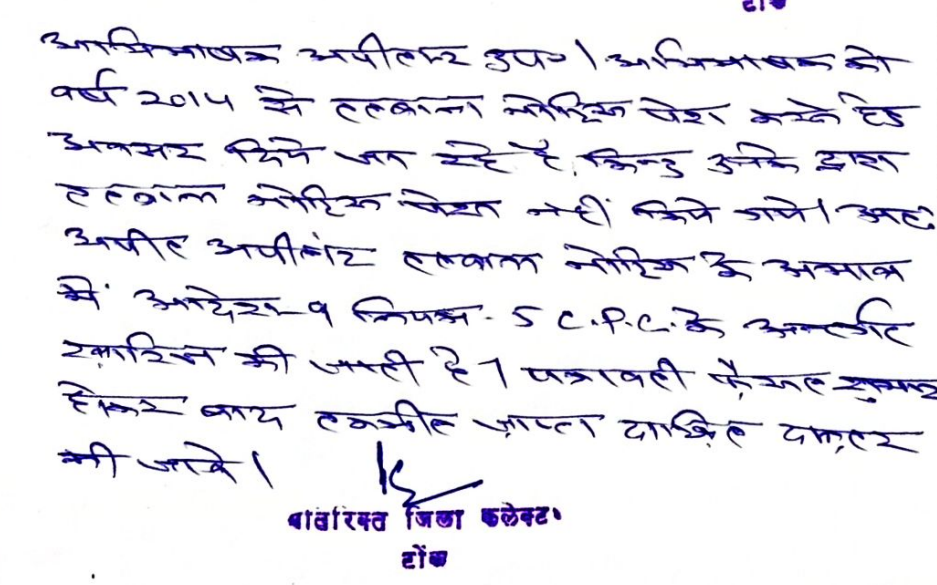 टोंक
अभिभाषक अपीलान्ट उप० । अभिभाषक को
वर्ष 2014 से तलबाना नोटिस पेश करने हेतु
अवसर दिये जा रहे है, किन्तु उनके द्वारा
तलबाना नोटिस पेश नहीं किये गये। अतः
अपील अपीलांट तलबाना नोटिस के अभाव
में आदेश-9 नियम-5 C.P.C. के अन्तर्गत
खारिज की जाती है। पत्रावली फैसल शुमार
होकर बाद तकमील जाप्ता दाखिल दफ्तर
की जावे।
अतिरिक्त जिला कलेक्टर
टोंक